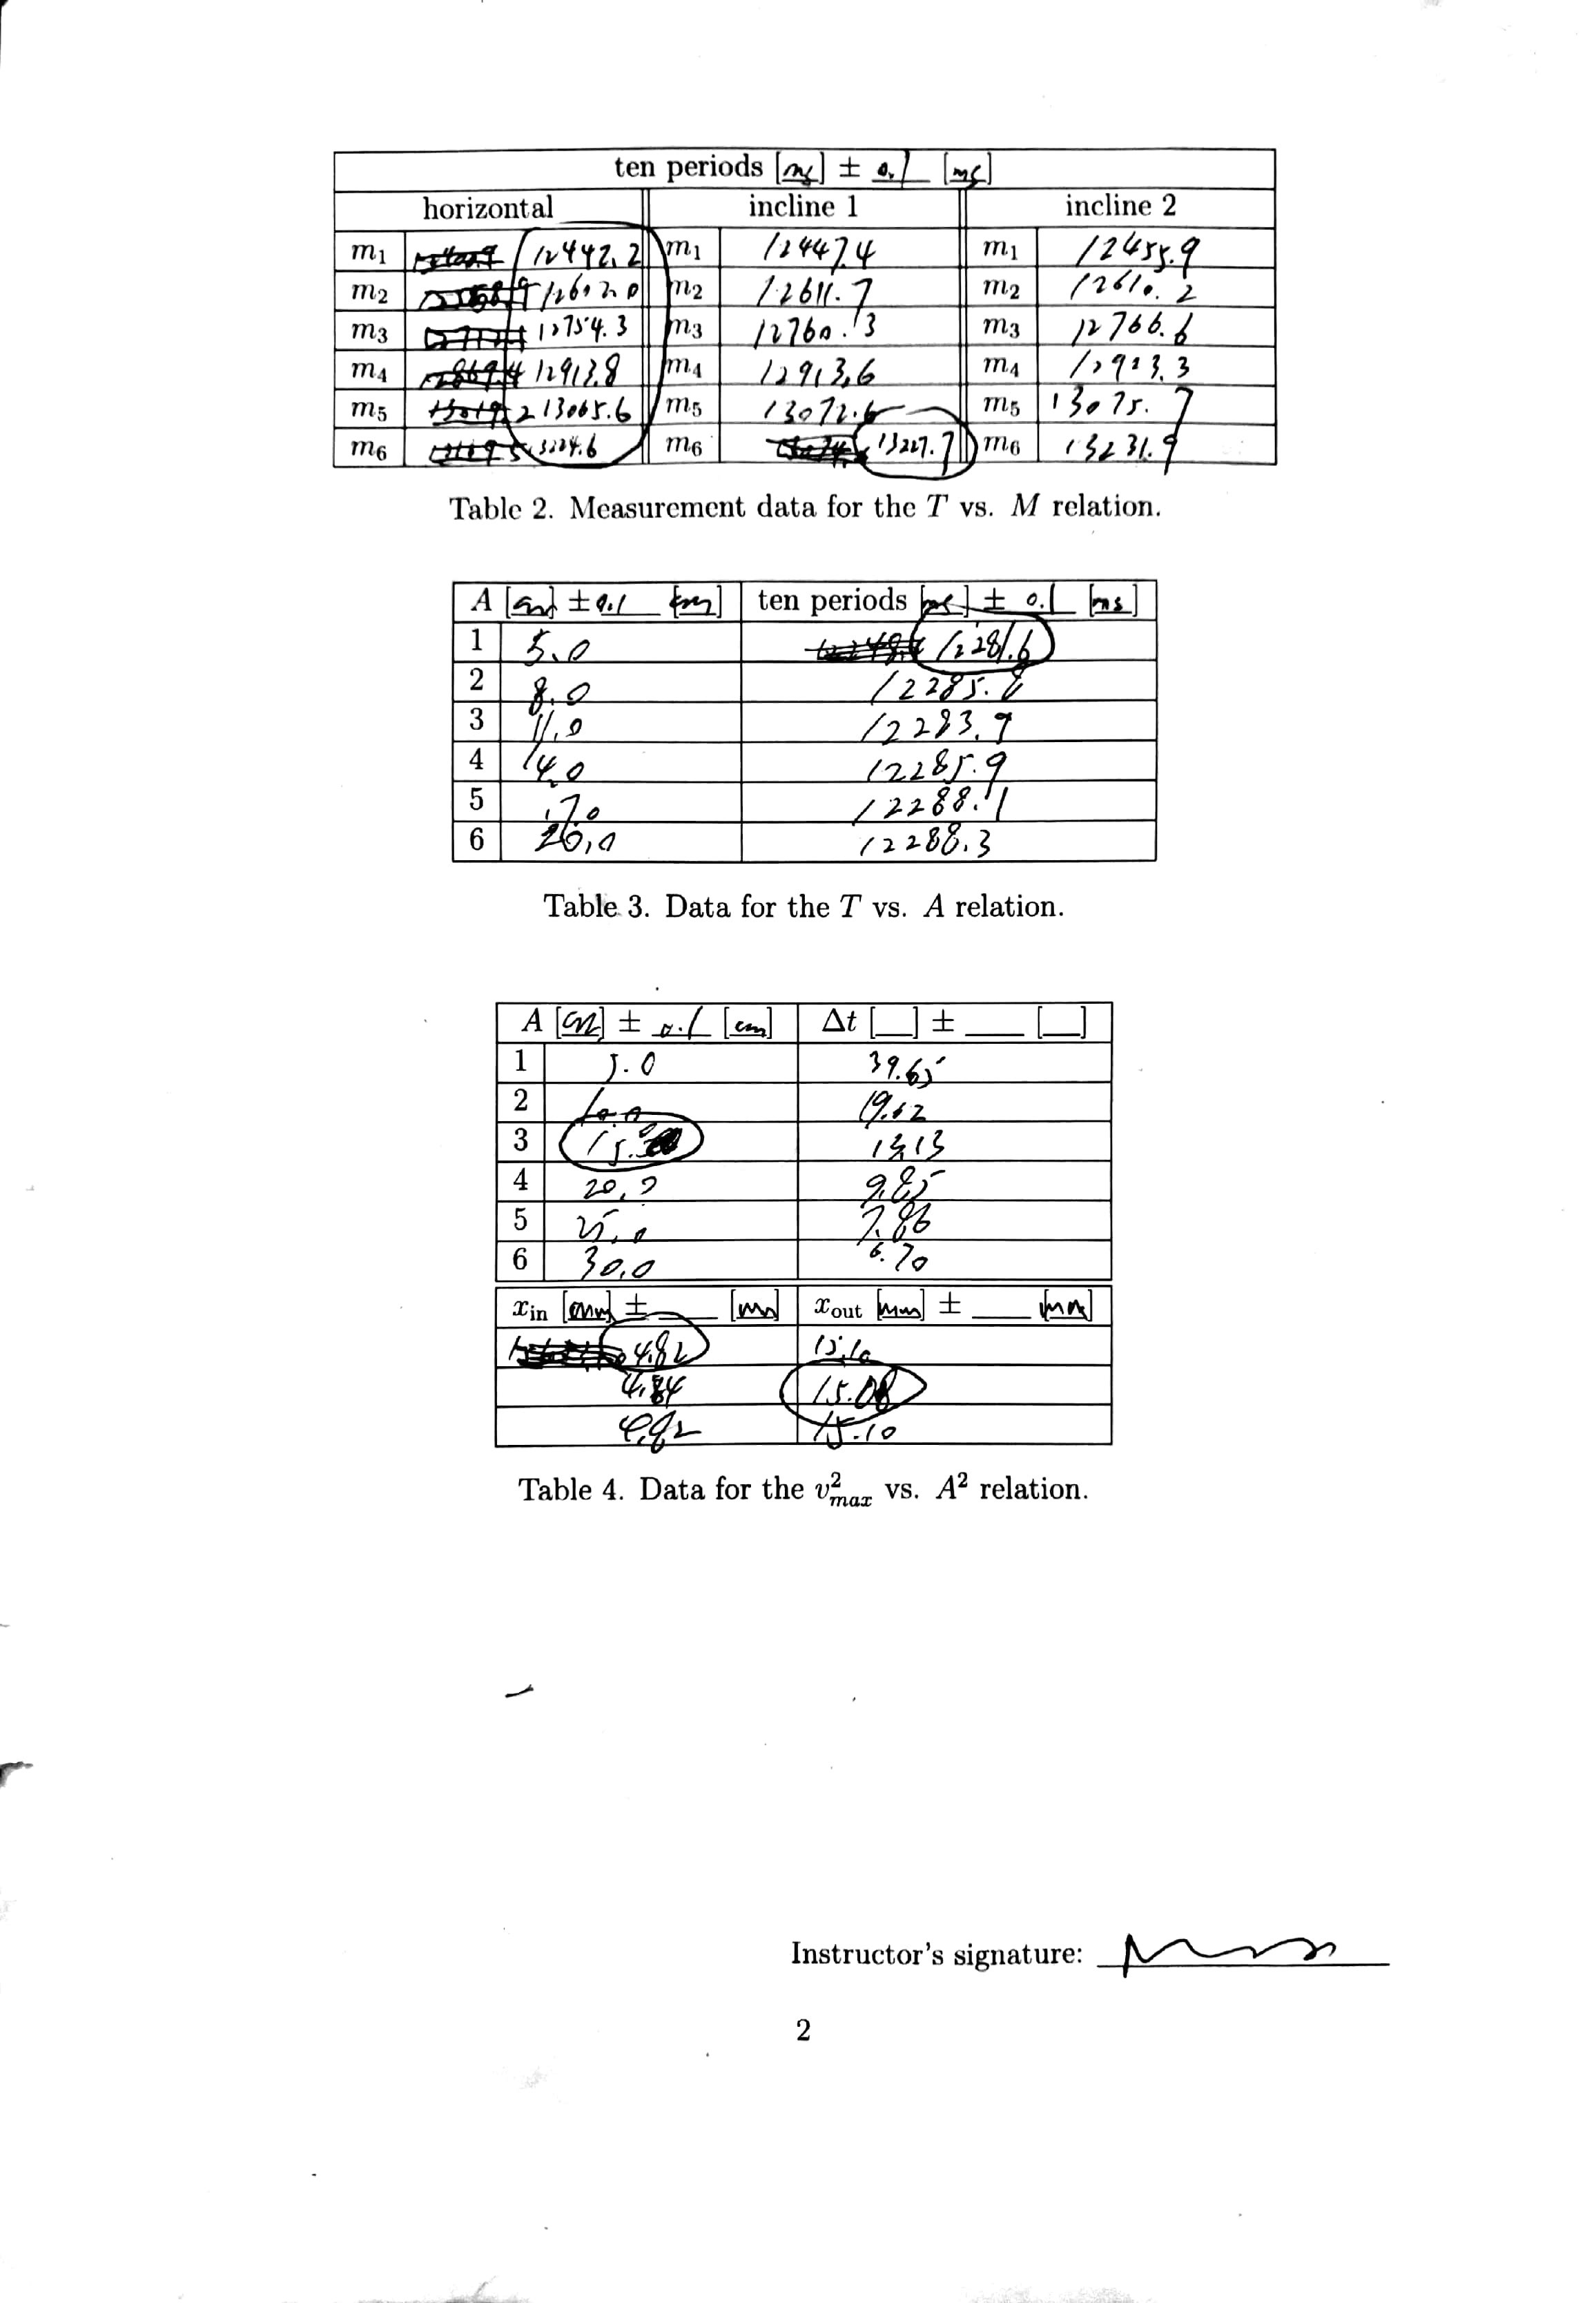 ten periods [ms] ± 0.1 [ms]
horizontal incline 1 incline 2
m1 12442.2 m1 12447.4 m1 12455.9
m2 12602.0 m2 12611.7 m2 12610.2
m3 12754.3 m3 12760.3 m3 12766.6
m4 12913.8 m4 12913.6 m4 12923.3
m5 13065.6 m5 13072.6 m5 13075.7
m6 13224.6 m6 13227.7 m6 13231.9
Table 2. Measurement data for the T vs. M relation.
A [cm] ± 0.1 [cm] ten periods [ms] ± 0.1 [ms]
1 5.0 12281.6
2 8.0 12285.
3 11.0 12283.9
4 14.0 12285.9
5 17.0 12288.1
6 20.0 12288.3
Table 3. Data for the T vs. A relation.
A [cm] ± 0.1 [cm] Δt [__] ± ____ [__]
1 5.0 39.65
2 10.0 19.62
3 15.0 13.13
4 20.0 9.85
5 25.0 7.86
6 30.0 6.70
xin [mm] ± ____ [mm] xout [mm] ± ____ [mm]
4.82 15.10
4.84 15.08
4.82 15.10
Table 4. Data for the v²max vs. A² relation.
Instructor's signature:
2